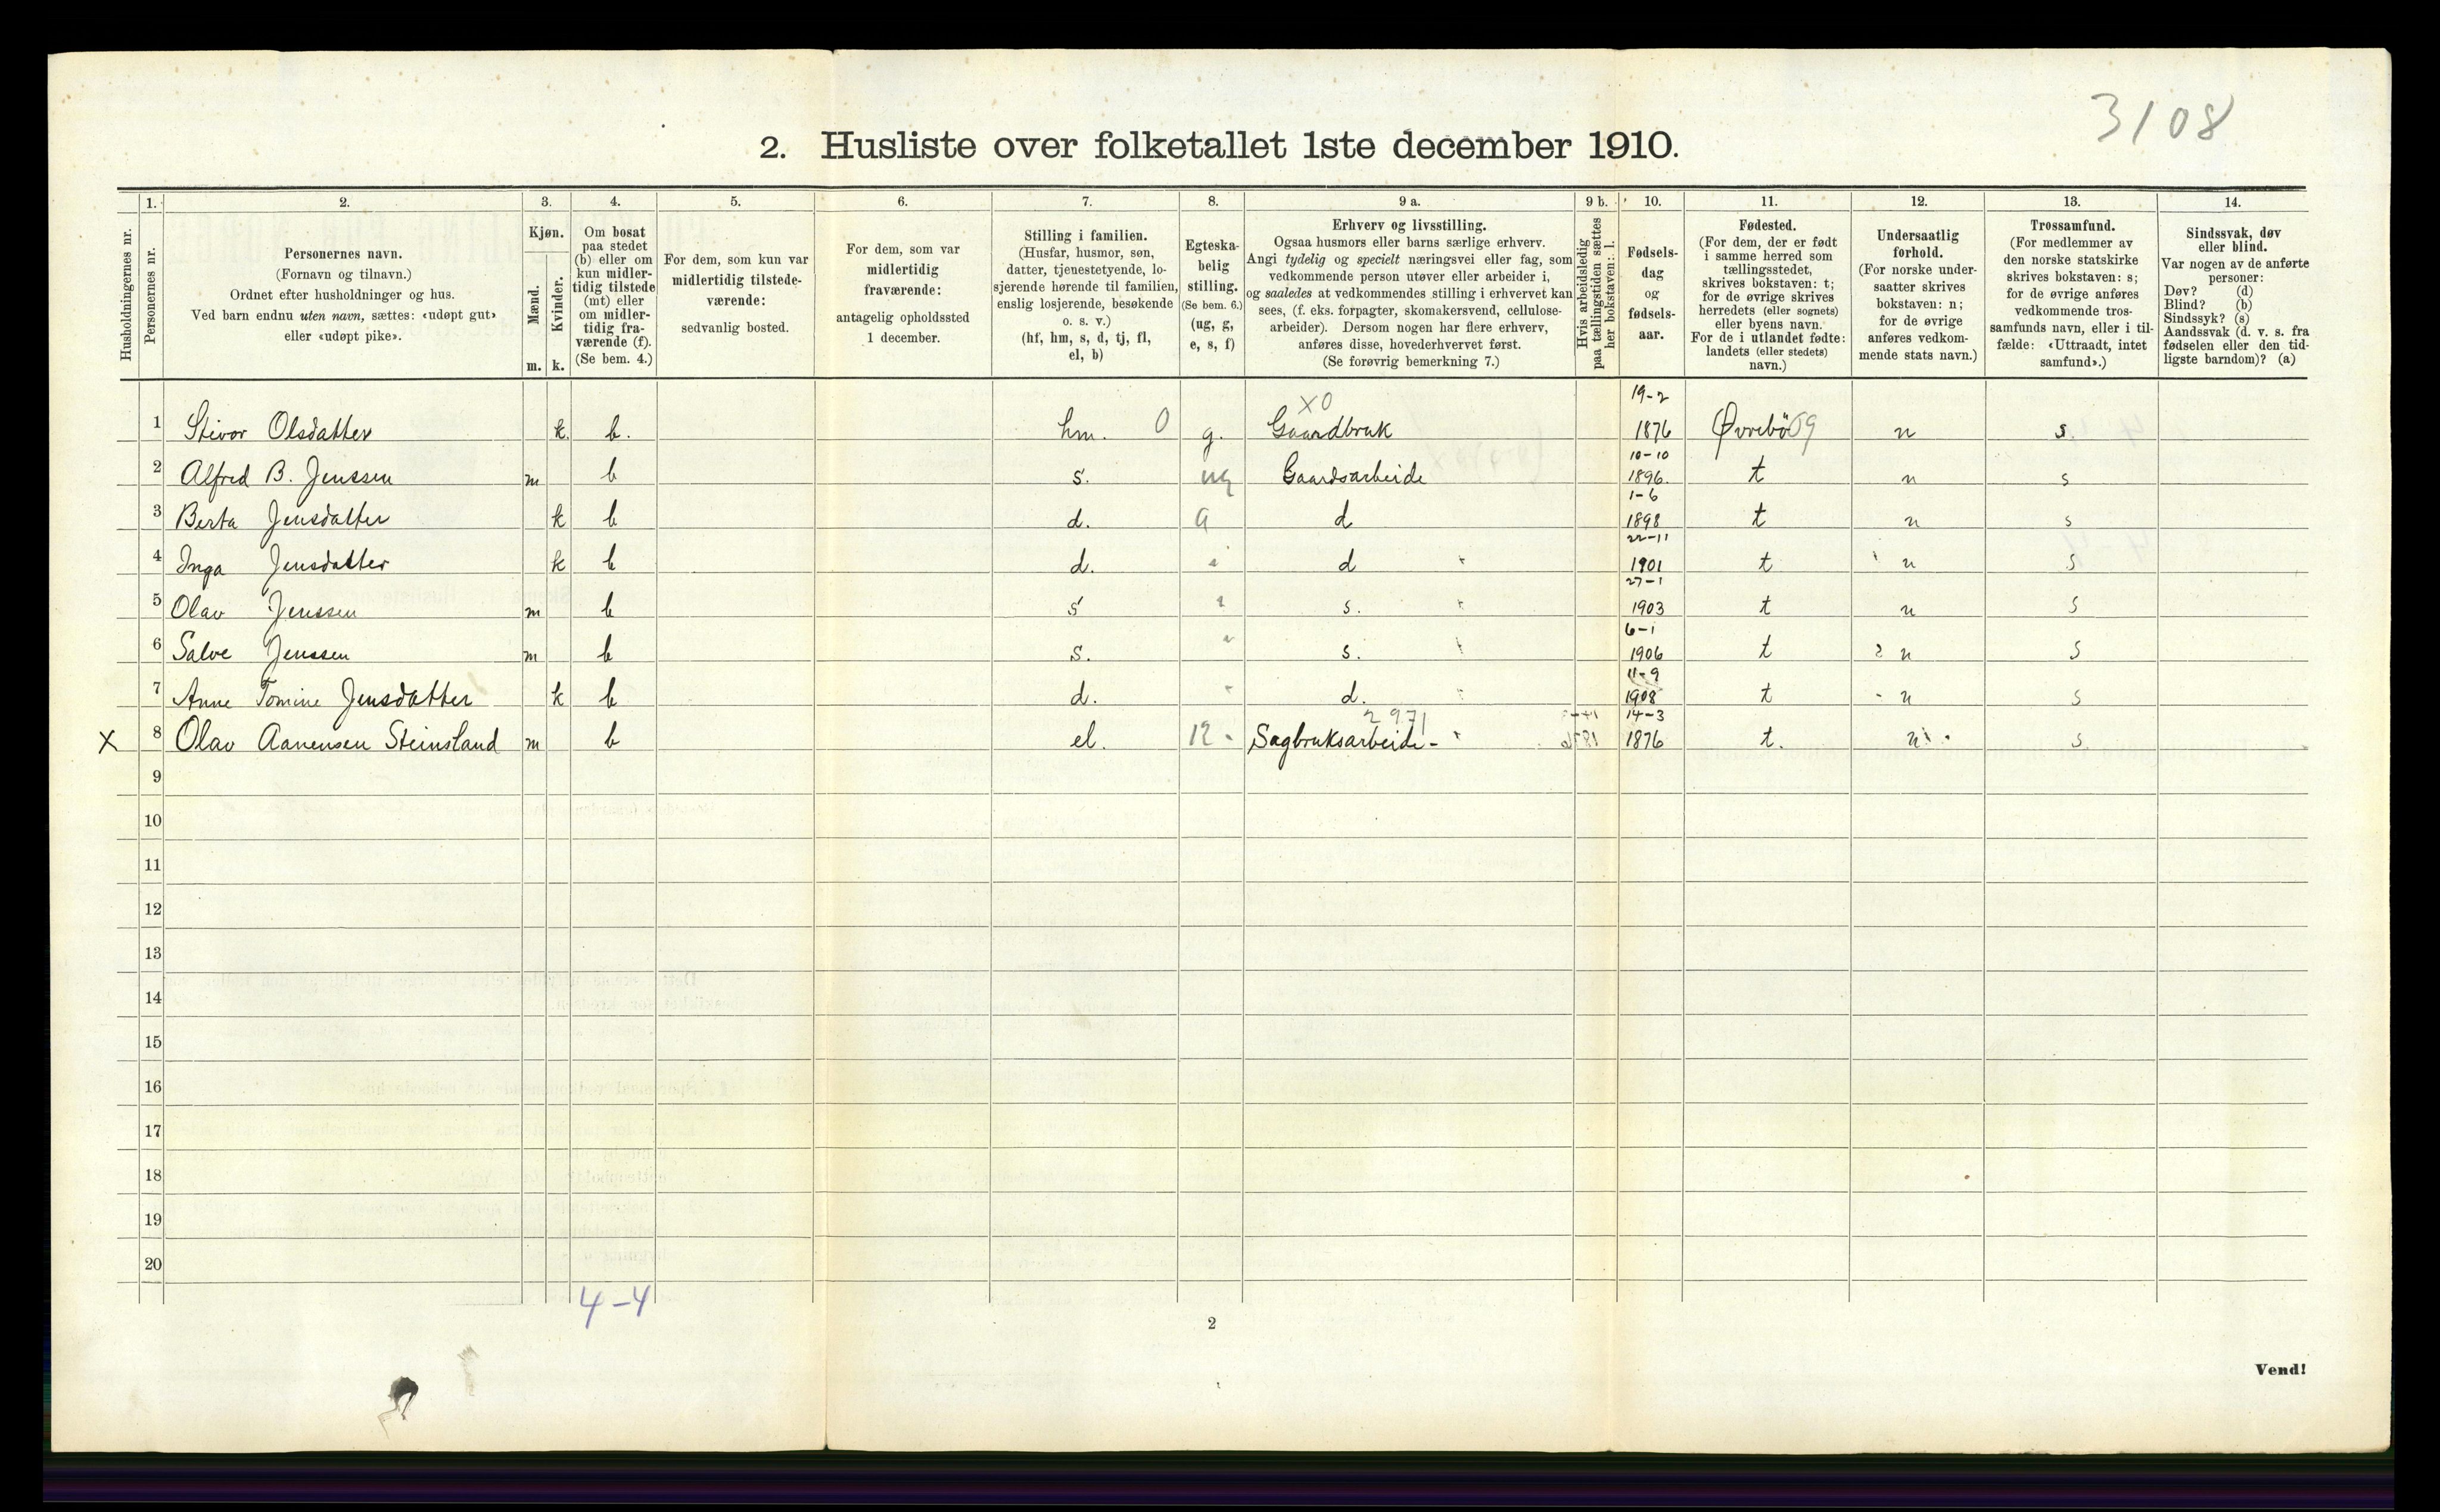 3108
2. Husliste over folketallet 1ste december 1910.
Husholdningernes nr.
1. Personernes nr.
2. Personernes navn.
(Fornavn og tilnavn.)
Ordnet efter husholdninger og hus.
Ved barn endnu uten navn, sættes: «udøpt gut»
eller «udøpt pike».
3. Kjøn.
Mænd. m.
Kvinder. k.
4. Om bosat
paa stedet
(b) eller om
kun midler-
tidig tilstede
(mt) eller
om midler-
tidig fra-
værende (f).
(Se bem. 4.)
5. For dem, som kun var
midlertidig tilstede-
værende:
sedvanlig bosted.
6. For dem, som var
midlertidig
fraværende:
antagelig opholdssted
1 december.
7. Stilling i familien.
(Husfar, husmor, søn,
datter, tjenestetyende, lo-
sjerende hørende til familien,
enslig losjerende, besøkende
o. s. v.)
(hf, hm, s, d, tj, fl,
el, b)
8. Egteska-
belig
stilling.
(Se bem. 6.)
(ug, g,
e, s, f)
9 a. Erhverv og livsstilling.
Ogsaa husmors eller barns særlige erhverv.
Angi tydelig og specielt næringsvei eller fag, som
vedkommende person utøver eller arbeider i,
og saaledes at vedkommendes stilling i erhvervet kan
sees, (f. eks. forpagter, skomakersvend, cellulose-
arbeider). Dersom nogen har flere erhverv,
anføres disse, hovederhvervet først.
(Se forøvrig bemerkning 7.)
9 b. Hvis arbeidsledig
paa tællingstiden sættes
her bokstaven: l.
10. Fødsels-
dag
og
fødsels-
aar.
11. Fødested.
(For dem, der er født
i samme herred som
tællingsstedet,
skrives bokstaven: t;
for de øvrige skrives
herredets (eller sognets)
eller byens navn.
For de i utlandet fødte:
landets (eller stedets)
navn.)
12. Undersaatlig
forhold.
(For norske under-
saatter skrives
bokstaven: n;
for de øvrige
anføres vedkom-
mende stats navn.)
13. Trossamfund.
(For medlemmer av
den norske statskirke
skrives bokstaven: s;
for de øvrige anføres
vedkommende tros-
samfunds navn, eller i til-
fælde: «Uttraadt, intet
samfund».)
14. Sindssvak, døv
eller blind.
Var nogen av de anførte
personer:
Døv? (d)
Blind? (b)
Sindssyk? (s)
Aandssvak (d. v. s. fra
fødselen eller den tid-
ligste barndom)? (a)
XO 19-2
1 Stivor Olsdatter k. b. hm. 0 g. Gaardbruk 1876 Øvrebö 59 n s.
10-10
2 Alfred B. Jenssen m b s. ug Gaardsarbeide 1896. t n s
1-6
3 Berta Jensdatter k b d. d 1898 t n s
22-11
4 Inga Jensdatter k b d. d 1901 t n s
27-1
5 Olav Jenssen m b s s. 1903 t n s
6-1
6 Salve Jenssen m b s. s. 1906 t n s
11-9
7 Anne Tomine Jensdatter k b d. d. 1908 t n s
2971 14-3
X 8 Olav Aanensen Steinsland m b el. Sagbruksarbeide- 1876 t. n s
9
10
11
12
13
14
15
16
17
18
19
20
4-4
2
Vend!